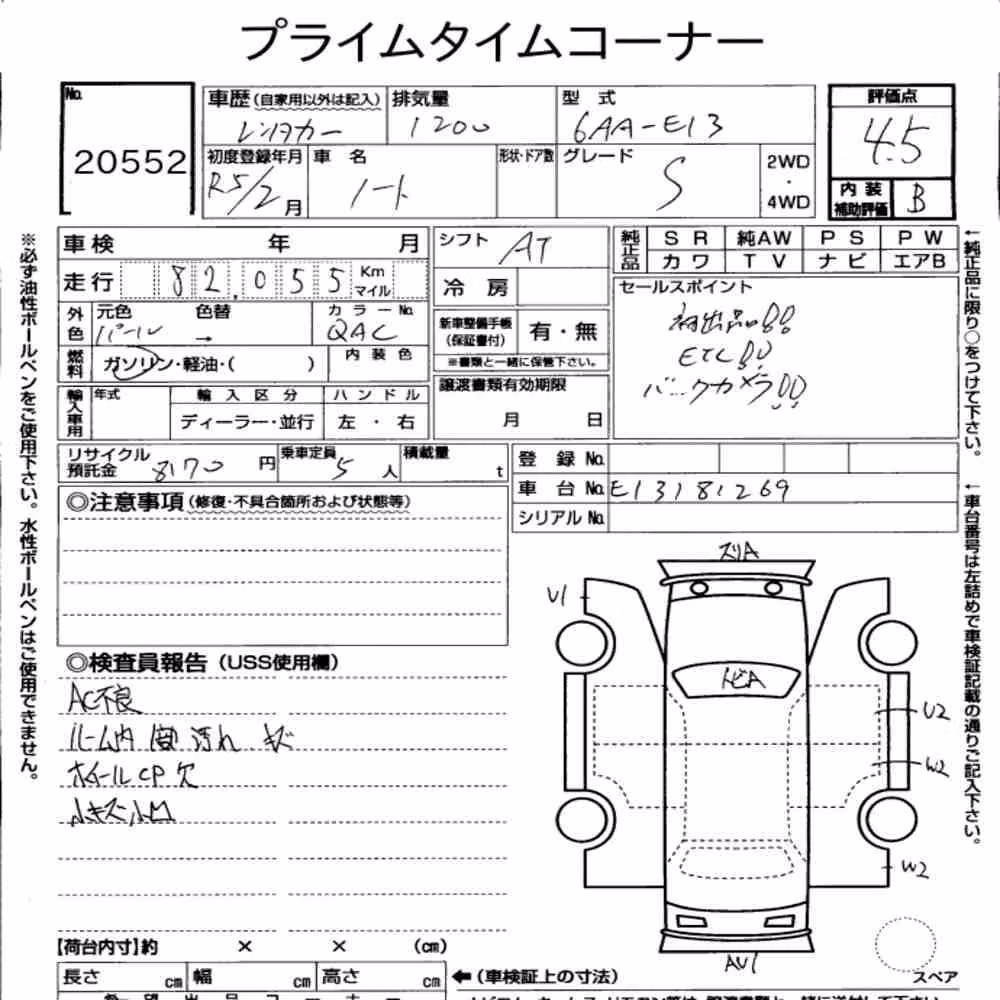 プライムタイムコーナー
No. 20552
車歴 (自家用以外は記入) レンタカー
排気量 1200
型 式 6AA-E13
評価点 4.5
初度登録年月 R5/2月
車 名 ノート
形状・ドア数
グレード S
2WD・4WD
内装補助評価 B
車検 年 月
走行 82,055 Km マイル
外色 元色 パール 色替 →
カラーNo. QAC
燃料 ガソリン・軽油・( )
内装色
輸入車用 年式
輸入区分 ディーラー・並行
ハンドル 左・右
シフト AT
冷 房
新車整備手帳(保証書付) 有・無
※書類と一緒に保管下さい。
譲渡書類有効期限
月 日
純正品 SR 純AW PS PW
カワ TV ナビ エアB
セールスポイント
初出品!!
ETC!!
バックカメラ!!
リサイクル預託金 8170円
乗車定員 5人
積載量 t
登 録 No.
車 台 No. E13181269
シリアル No.
◎注意事項 (修復・不具合箇所および状態等)
◎検査員報告 (USS使用欄)
AC不良
ルーム内 汚れ キズ
ホイールCP欠
小キズ小凹
※必ず油性ボールペンをご使用下さい。水性ボールペンはご使用できません。
←純正品に限り○をつけて下さい。
←車台番号は左詰めで車検証記載の通りご記入下さい。
スリA
U1
トビA
U2
W2
W2
AU1
スペア
【荷台内寸】約 × × (cm)
長さ cm 幅 cm 高さ cm
←(車検証上の寸法)